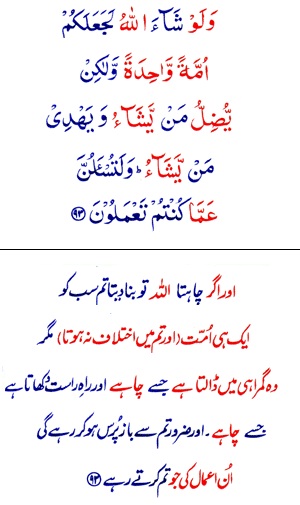 وَلَوْ شَآءَ اللّٰهُ لَجَعَلَكُمْ
اُمَّةً وَّاحِدَةً وَّلٰكِنْ
يُّضِلُّ مَنْ يَّشَآءُ وَ يَهْدِىْ
مَنْ يَّشَآءُ ؕ وَلَتُسْـَٔلُنَّ
عَمَّا كُنْتُمْ تَعْمَلُوْنَ ﴿۹۳﴾
اور اگر چاہتا اللہ تو بنا دیتا تم سب کو
ایک ہی اُمّت (اور تم میں اختلاف نہ ہوتا) مگر
وہ گمراہی میں ڈالتا ہے جسے چاہے اور راہِ راست دکھاتا ہے
جسے چاہے۔ اور ضرور تم سے باز پُرس ہو کر رہے گی
اُن اعمال کی جو تم کرتے رہے ﴿۹۳﴾